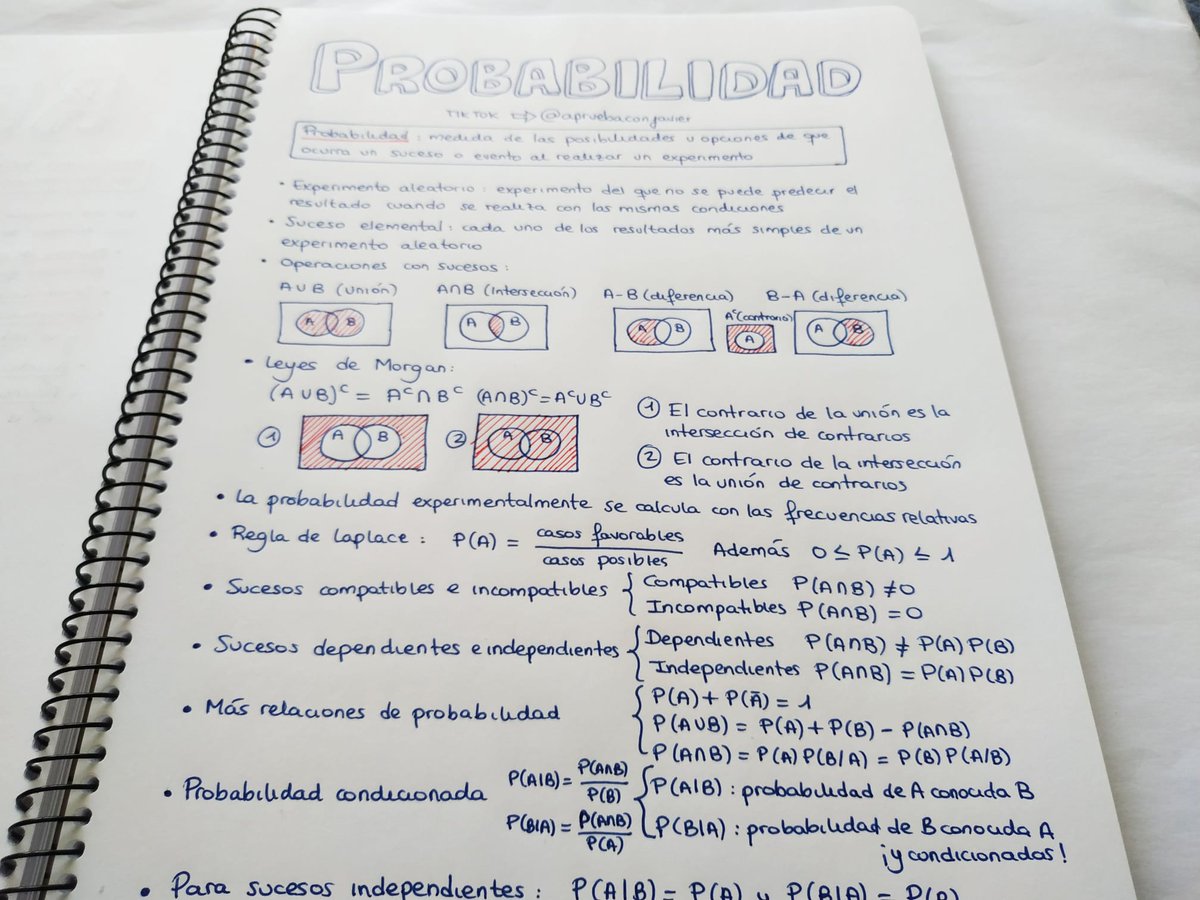 PROBABILIDAD
TIKTOK ⇨ @apruebaconjavier
Probabilidad: medida de las posibilidades u opciones de que
ocurra un suceso o evento al realizar un experimento
• Experimento aleatorio: experimento del que no se puede predecir el
resultado cuando se realiza con las mismas condiciones
• Suceso elemental: cada uno de los resultados más simples de un
experimento aleatorio
• Operaciones con sucesos:
A∪B (Unión) A∩B (Intersección) A-B (diferencia) B-A (diferencia)
Aᶜ(contrario)
A B A B A B A A B
• Leyes de Morgan:
(A∪B)ᶜ = Aᶜ∩Bᶜ (A∩B)ᶜ=Aᶜ∪Bᶜ
① A B ② A B
① El contrario de la unión es la
intersección de contrarios
② El contrario de la intersección
es la unión de contrarios
• La probabilidad experimentalmente se calcula con las frecuencias relativas
• Regla de Laplace: P(A) = casos favorables / casos posibles Además 0 ≤ P(A) ≤ 1
• Sucesos compatibles e incompatibles { Compatibles P(A∩B) ≠ 0
Incompatibles P(A∩B) = 0
• Sucesos dependientes e independientes { Dependientes P(A∩B) ≠ P(A)P(B)
Independientes P(A∩B) = P(A)P(B)
• Más relaciones de probabilidad { P(A) + P(Ā) = 1
P(A∪B) = P(A) + P(B) - P(A∩B)
P(A∩B) = P(A)P(B/A) = P(B)P(A/B)
• Probabilidad condicionada P(A|B) = P(A∩B) / P(B) { P(A|B): probabilidad de A conocida B
P(B|A) = P(A∩B) / P(A) P(B|A): probabilidad de B conocida A
¡y condicionados!
• Para sucesos independientes: P(A|B) = P(A) y P(B|A) =